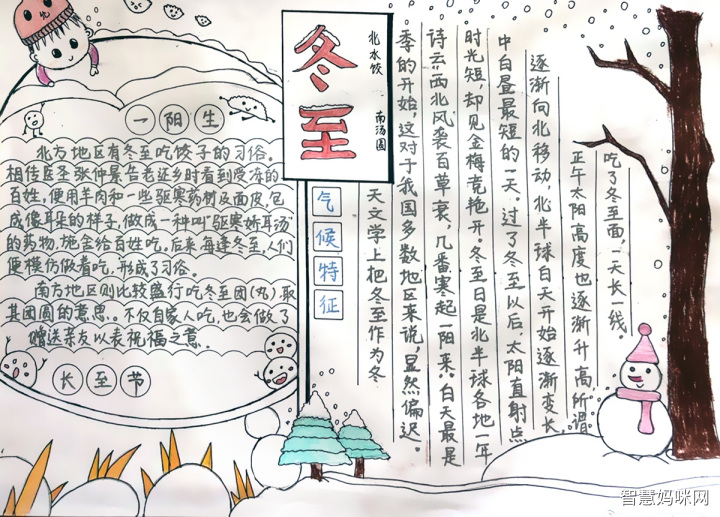 冬至
北水饺
南汤圆
一阳生
北方地区有冬至吃饺子的习俗。
相传医圣张仲景告老还乡时看到受冻的
百姓，便用羊肉和一些驱寒药材及面皮，包
成像耳朵的样子，做成一种叫“驱寒娇耳汤”
的药物，施舍给百姓吃。后来每逢冬至，人们
便模仿做着吃，形成了习俗。
南方地区则比较盛行吃冬至团(丸)，取
其团圆的意思。不仅自家人吃，也会做了
赠送亲友以表祝福之意、
长至节
气候特征
天文学上把冬至作为冬
季的开始，这对于我国多数地区来说，显然偏迟。
诗云：西北风袭百草衰，几番寒起一阳来。白天最是
时光短，却见金梅竞艳开。冬至日是北半球各地一年
中白昼最短的一天。过了冬至以后，太阳直射点
逐渐向北移动，北半球白天开始逐渐变长，
正午太阳高度也逐渐升高，所谓
吃了冬至面，一天长一线。
智慧妈咪网